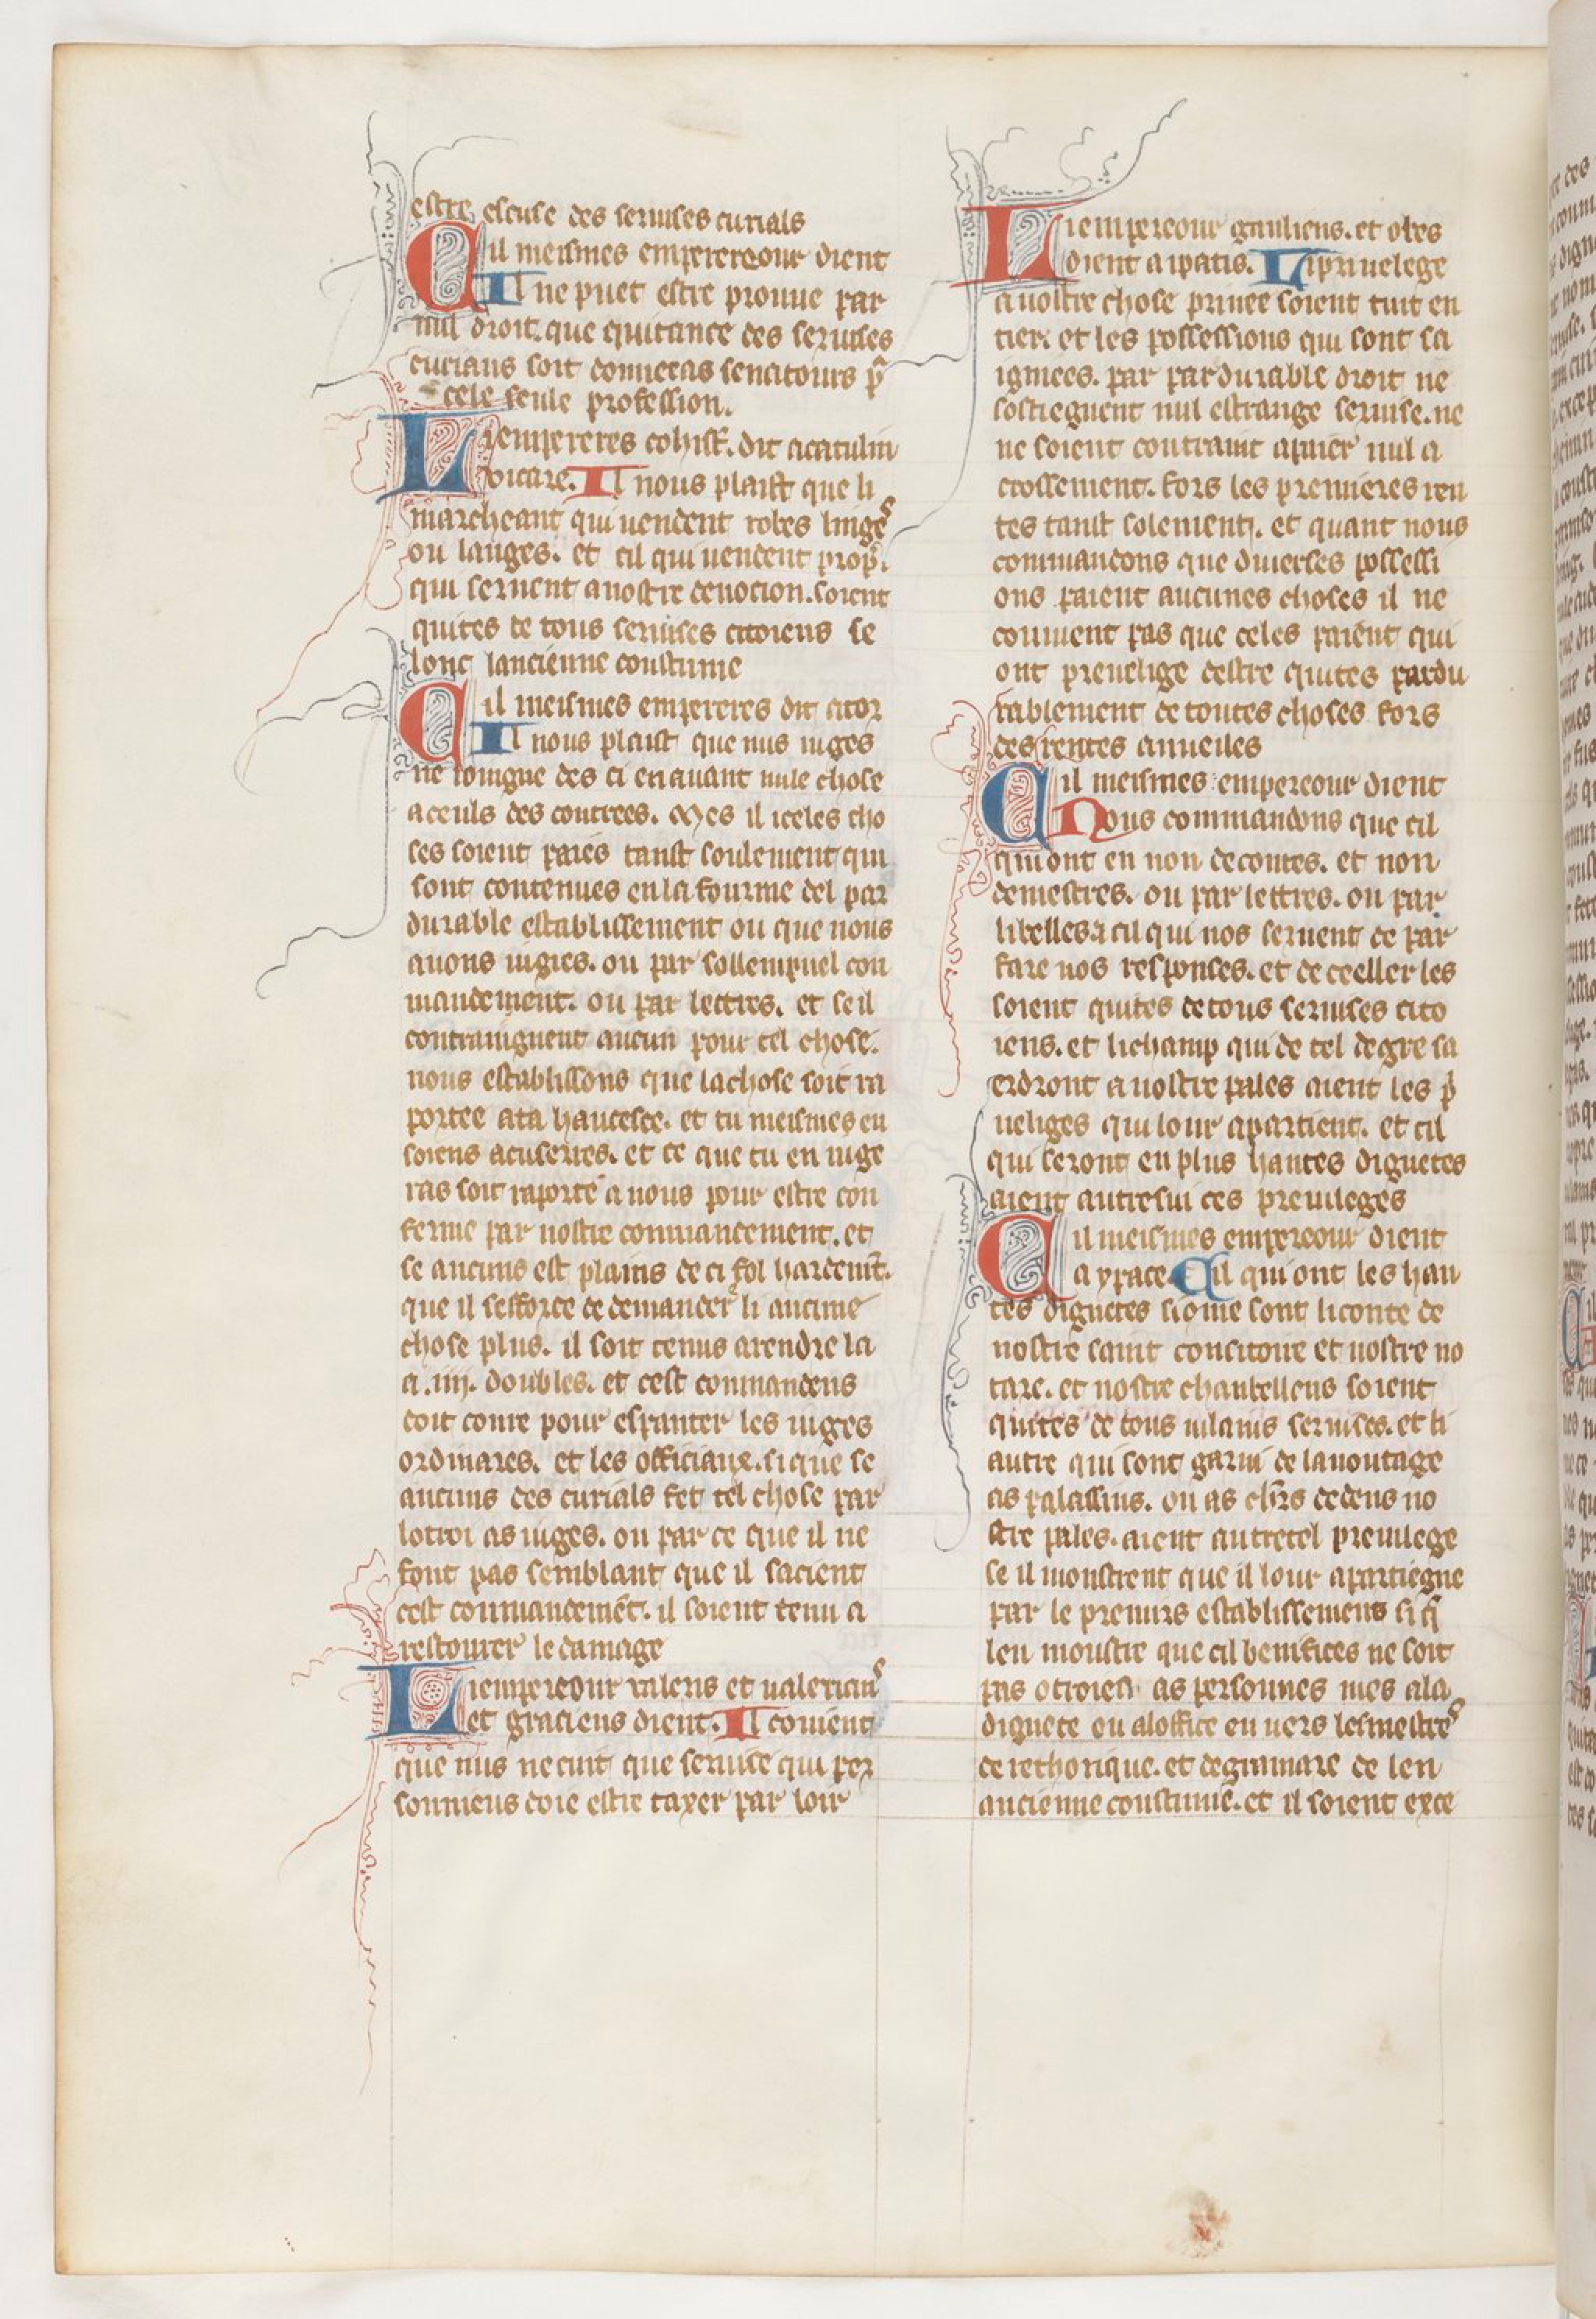 estre escuse des seruises curials
Cil meismes emperereour dient
Il ne puet estre prouue par
nul droit. que quitance des seruises
curians soit donnee as senatours p̃
cele seule profession.
Li empereres const̃. dit a catulin
vicaire. Il nous plaist que li
marcheant qui uendent robes linges
ou langes. et cil qui uendent prop̃.
qui seruent a nostre deuocion. soient
quites de tous seruises citoiens se
lonc lancienne coustume
Cil meismes empereres dit a tor
Il nous plaist que nus iuges
ne ioingne des ci en auant nule chose
a ceuls des contrees. Mes il iceles cho
ses soient paies tanst soulement qui
sont contenues en la fourme del par
durable establissement ou que nous
auons iugies. ou par sollempnel con
mandement. ou par lettres. et se il
contraingnent aucun pour tel chose.
nous establissons que la chose soit ra
portee a ta hautesce. et tu meismes en
soiens acuserres. et ce que tu en iuge
ras soit raporte a nous pour estre con
ferme par nostre commandement. et
se aucuns est plains de ci fol hardemt̃.
que il sefforce de demander li aucune
chose plus. il soit tenus a rendre la
a .iiij. doubles. et cest commandens
doit corre pour espanter les iuges
ordinares. et les officiaux. si que se
aucuns des curials fet tel chose par
lotroi as iuges. ou par ce que il ne
font pas semblant que il sacient
cest commandemẽt. il soient tenu a
restourer le damage
Li empereour ualens et ualerians
et graciens dient. Il couient
que nus ne cuit que seruise qui per
sonniens doie estre taxer par loir
Li empereour gauliens. et otes
dient a ipatis. Li priuelege
a uostre chose priuee soient tuit en
tier. et les possessions qui sont sa
igniees. par pardurable droit ne
sostiegnent nul estrange seruise. ne
ne soient contraint a paier nul a
croissement. fors les premieres ren
tes tanst solement. et quant nous
commandons que diuerses possessi
ons paient aucunes choses il ne
couuient pas que celes paient qui
ont preuelige destre quites pardu
rablement de toutes choses fors
des rentes annelles
Cil meismes empereour dient
Nous commandons que cil
qui ont en non de contes. et non
de mestres. ou par lettres. ou par
libelles a cil qui nos seruent de par
faire nos responses. et de ceeller les
soient quites de tous seruises cito
iens. et li champ qui de tel degre sa
erdront a nostre pales aient les p̃
ueliges qui lour apartient. et cil
qui seront en plus hautes dignetes
aient autresui ces preuileges
Cil meismes empereour dient
a ypace. Cil qui ont les hau
tes dignetes si come sont li conte de
nostre saint consitoire et nostre no
taire. et nostre chanbellens soient
quites de tous uilains seruises. et li
autre qui sont garni de lauoutage
as palassius. ou as ch̃rs dedens no
stre pales. aient autretel preuilege
se il monstrent que il lour apartiegne
par le premirs establissemens si q̃
len moustre que cil benifices ne soit
pas otroies as persounes mes a la
dignete ou a loffice en uers les mestres
de rethorique. et de gramare de len
ancienne coustume. et il soient exce